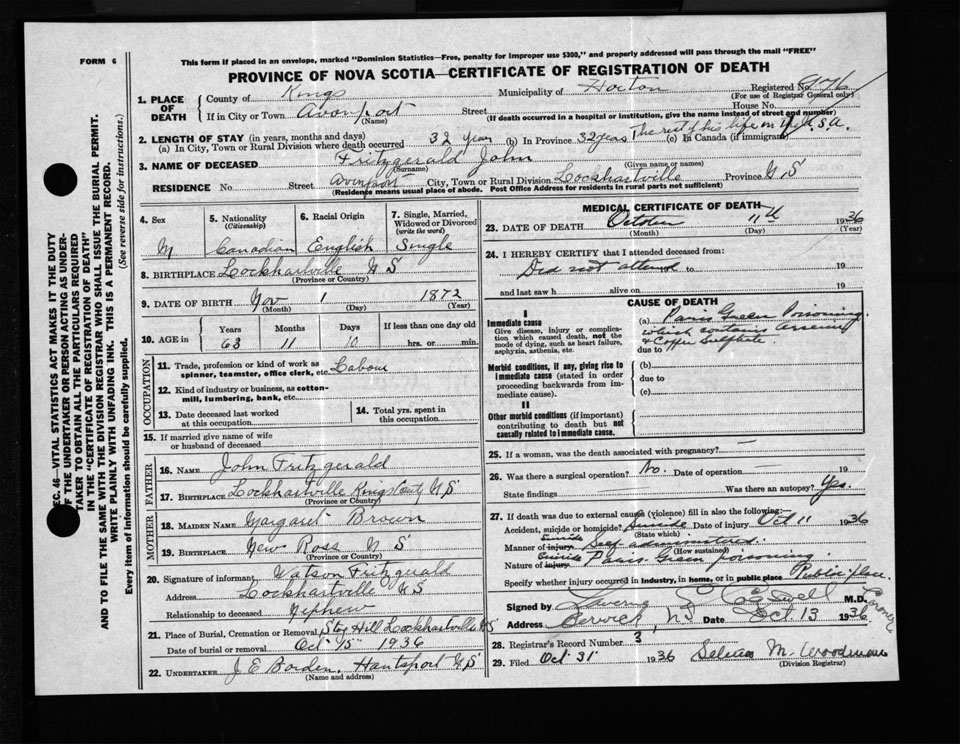 FORM 6
This form if placed in an envelope, marked "Dominion Statistics—Free, penalty for improper use $300," and properly addressed will pass through the mail "FREE"
PROVINCE OF NOVA SCOTIA—CERTIFICATE OF REGISTRATION OF DEATH
Registered No.
(For use of Registrar General only)
1. PLACE OF DEATH
County of Kings Municipality of Horton
If in City or Town Avonport Street House No.
(Name) (If death occurred in a hospital or institution, give the name instead of street and number)
2. LENGTH OF STAY (in years, months and days)
(a) In City, Town or Rural Division where death occurred 32 Year (b) In Province 32 Years The rest of his life in U.S.A. (c) In Canada (if immigrant)
3. NAME OF DECEASED Fritzgerald John
(Surname) (Given name or names)
RESIDENCE No. Street Avinport City, Town or Rural Division Lockhartville Province N S
(Residence means usual place of abode. Post Office Address for residents in rural parts not sufficient)
4. Sex M
5. Nationality (Citizenship) Canadian
6. Racial Origin English
7. Single, Married, Widowed or Divorced (write the word) Single
8. BIRTHPLACE Lockhartville N S
(Province or Country)
9. DATE OF BIRTH Nov 1 1872
(Month) (Day) (Year)
10. AGE in Years 63 Months 11 Days 10 If less than one day old hrs. or min.
OCCUPATION
11. Trade, profession or kind of work as spinner, teamster, office clerk, etc. Labour
12. Kind of industry or business, as cotton-mill, lumbering, bank, etc.
13. Date deceased last worked at this occupation
14. Total yrs. spent in this occupation
15. If married give name of wife or husband of deceased
FATHER
16. NAME John Fritzgerald
17. BIRTHPLACE Lockhartville Kings Cout N S
(Province or Country)
MOTHER
18. MAIDEN NAME Margaret Brown
19. BIRTHPLACE New Ross N S
(Province or Country)
20. Signature of informant Watson Fritzgerald
Address Lockhartville N S
Relationship to deceased Nephew
21. Place of Burial, Cremation or Removal Hill Lockhartville N S
Date of burial or removal Oct 15 1936
22. UNDERTAKER J E Borden, Hantsport N S
(Name and address)
MEDICAL CERTIFICATE OF DEATH
23. DATE OF DEATH October 11th 1936
(Month) (Day) (Year)
24. I HEREBY CERTIFY that I attended deceased from:
Did not attend to 19
and last saw h alive on 19
CAUSE OF DEATH
I
Immediate cause
Give disease, injury or complication which caused death, not the mode of dying, such as heart failure, asphyxia, asthenia, etc.
(a) Paris Green Poisoning
which contains Arsenic
& Copper Sulphate
due to
Morbid conditions, if any, giving rise to immediate cause (stated in order proceeding backwards from immediate cause).
(b)
due to
(c)
II
Other morbid conditions (if important) contributing to death but not causally related to immediate cause.
25. If a woman, was the death associated with pregnancy? —
26. Was there a surgical operation? No. Date of operation — 19
State findings Was there an autopsy? Yes.
27. If death was due to external causes (violence) fill in also the following:
Accident, suicide or homicide? Suicide Date of injury Oct 11 1936
(State which)
Manner of injury Suicide Self administered.
(How sustained)
Nature of injury Suicide Paris Green poisoning
Specify whether injury occurred in industry, in home, or in public place Public place
Signed by M.D. Coroner
Address Berwick, NS Date Oct. 13 1936
28. Registrar's Record Number 3
29. Filed Oct 31 1936 M. Woodman
(Division Registrar)
SEC. 46—VITAL STATISTICS ACT MAKES IT THE DUTY
OF THE UNDERTAKER OR PERSON ACTING AS UNDERTAKER TO OBTAIN ALL THE PARTICULARS REQUIRED
IN THE "CERTIFICATE OF REGISTRATION OF DEATH"
AND TO FILE THE SAME WITH THE DIVISION REGISTRAR WHO SHALL ISSUE THE BURIAL PERMIT.
WRITE PLAINLY WITH UNFADING INK. THIS IS A PERMANENT RECORD.
Every item of information should be carefully supplied. (See reverse side for instructions.)